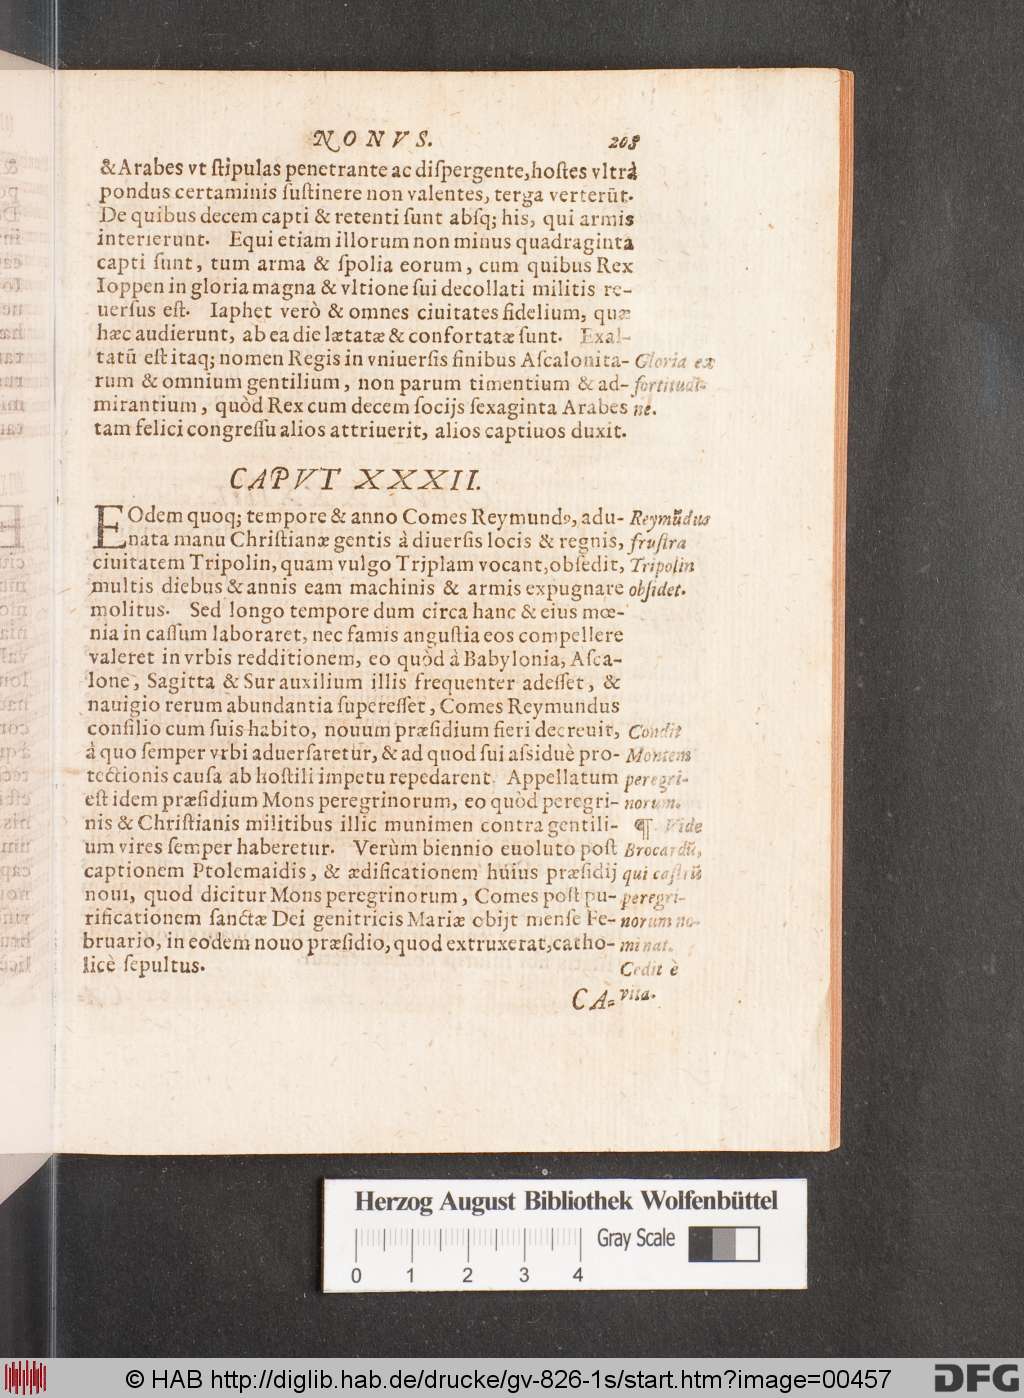 NONVS. 208
& Arabes vt ſtipulas penetrante ac diſpergente, hoſtes vltrà
pondus certaminis ſuſtinere non valentes, terga verterūt.
De quibus decem capti & retenti ſunt abſq; his, qui armis
interierunt. Equi etiam illorum non minus quadraginta
capti ſunt, tum arma & ſpolia eorum, cum quibus Rex
Ioppen in gloria magna & vltione ſui decollati militis re-
uerſus eſt. Iaphet verò & omnes ciuitates fidelium, quæ
hæc audierunt, ab ea die lætatæ & confortatæ ſunt. Exal-
tatū eſt itaq; nomen Regis in vniuerſis finibus Aſcalonita-
rum & omnium gentilium, non parum timentium & ad-
mirantium, quòd Rex cum decem ſocijs ſexaginta Arabes
tam felici congreſſu alios attriuerit, alios captiuos duxit.
Gloria ex
fortitudi-
ne.
CAPVT XXXII.
EOdem quoq; tempore & anno Comes Reymundꝰ, adu-
nata manu Chriſtianæ gentis à diuerſis locis & regnis,
ciuitatem Tripolin, quam vulgo Triplam vocant, obſedit,
multis diebus & annis eam machinis & armis expugnare
molitus. Sed longo tempore dum circa hanc & eius mœ-
nia in caſſum laboraret, nec famis anguſtia eos compellere
valeret in vrbis redditionem, eo quòd à Babylonia, Aſca-
lone, Sagitta & Sur auxilium illis frequenter adeſſet, &
nauigio rerum abundantia ſupereſſet, Comes Reymundus
conſilio cum ſuis habito, nouum præſidium fieri decreuit,
à quo ſemper vrbi aduerſaretur, & ad quod ſui aſsiduè pro-
tectionis cauſa ab hoſtili impetu repedarent. Appellatum
eſt idem præſidium Mons peregrinorum, eo quòd peregri-
nis & Chriſtianis militibus illic munimen contra gentili-
um vires ſemper haberetur. Verùm biennio euoluto poſt
captionem Ptolemaidis, & ædificationem huius præſidij
noui, quod dicitur Mons peregrinorum, Comes poſt pu-
rificationem ſanctæ Dei genitricis Mariæ obijt menſe Fe-
bruario, in eodem nouo præſidio, quod extruxerat, catho-
licè ſepultus.
Reymūdus
fruſtra
Tripolin
obſidet.
Condit
Montem
peregri-
norum.
¶ Vide
Brocardū,
qui caſtrū
peregri-
norum no-
minat.
Cedit è
vita.
CA-
Herzog August Bibliothek Wolfenbüttel
Gray Scale
0 1 2 3 4
© HAB http://diglib.hab.de/drucke/gv-826-1s/start.htm?image=00457
DFG